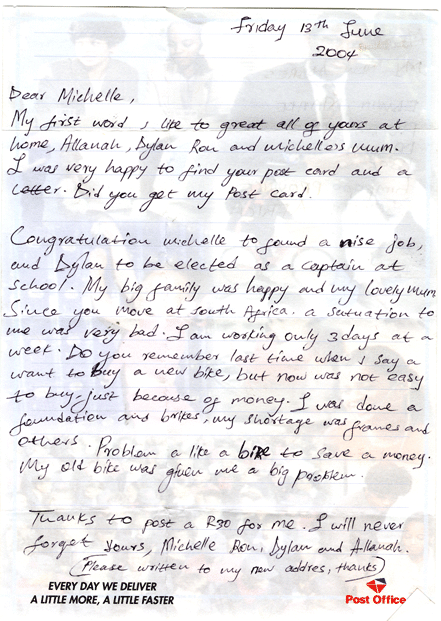 Friday 13th June
2004
Dear Michelle,
My first word I like to great all of yours at
home, Allanah, Dylan Ron and michellers mum.
I was very happy to find your post card and a
Letter. Did you get my Post card.
Congratulation michelle to found a nise job,
and Dylan to be elected as a captain at
school. My big family was happy and my lovely mum
Since you move at South Africa. a satuation to
me was very bad. I am working only 3 days at a
week. Do you remember last time when I say a
want to buy a new bike, but now was not easy
to buy-just because of money. I was done a
foundation and brikes, my shortage was frames and
others. Problem a like a bike to save a money.
My old bike was given me a big problem.
Thanks to post a R30 for me. I will never
forget yours, Michelle Ron, Dylan and Allanah.
(Please written to my new addres, thanks)
EVERY DAY WE DELIVER
A LITTLE MORE, A LITTLE FASTER
Post Office